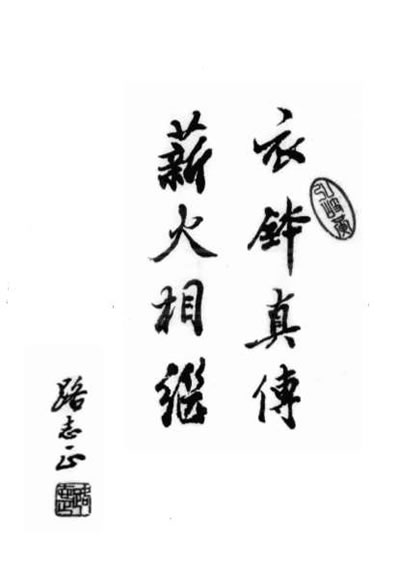 衣鉢真傳
薪火相繼
路志正